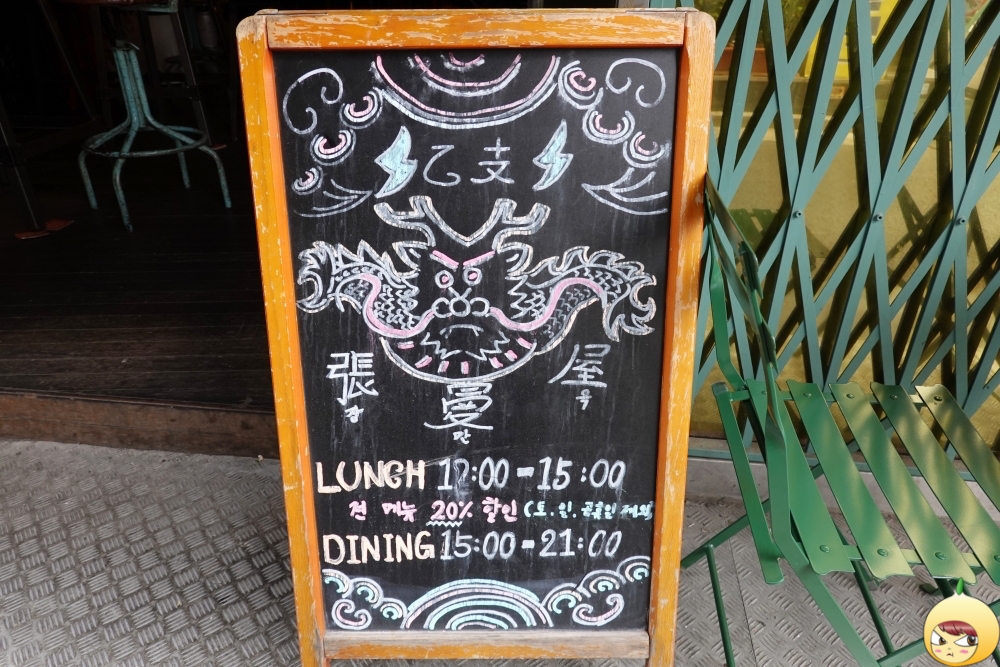 乙支
張 屋
장 曼 옥
만
LUNCH 12:00-15:00
전 메뉴 20% 할인 (토.일.공휴일 제외)
DINING 15:00-21:00